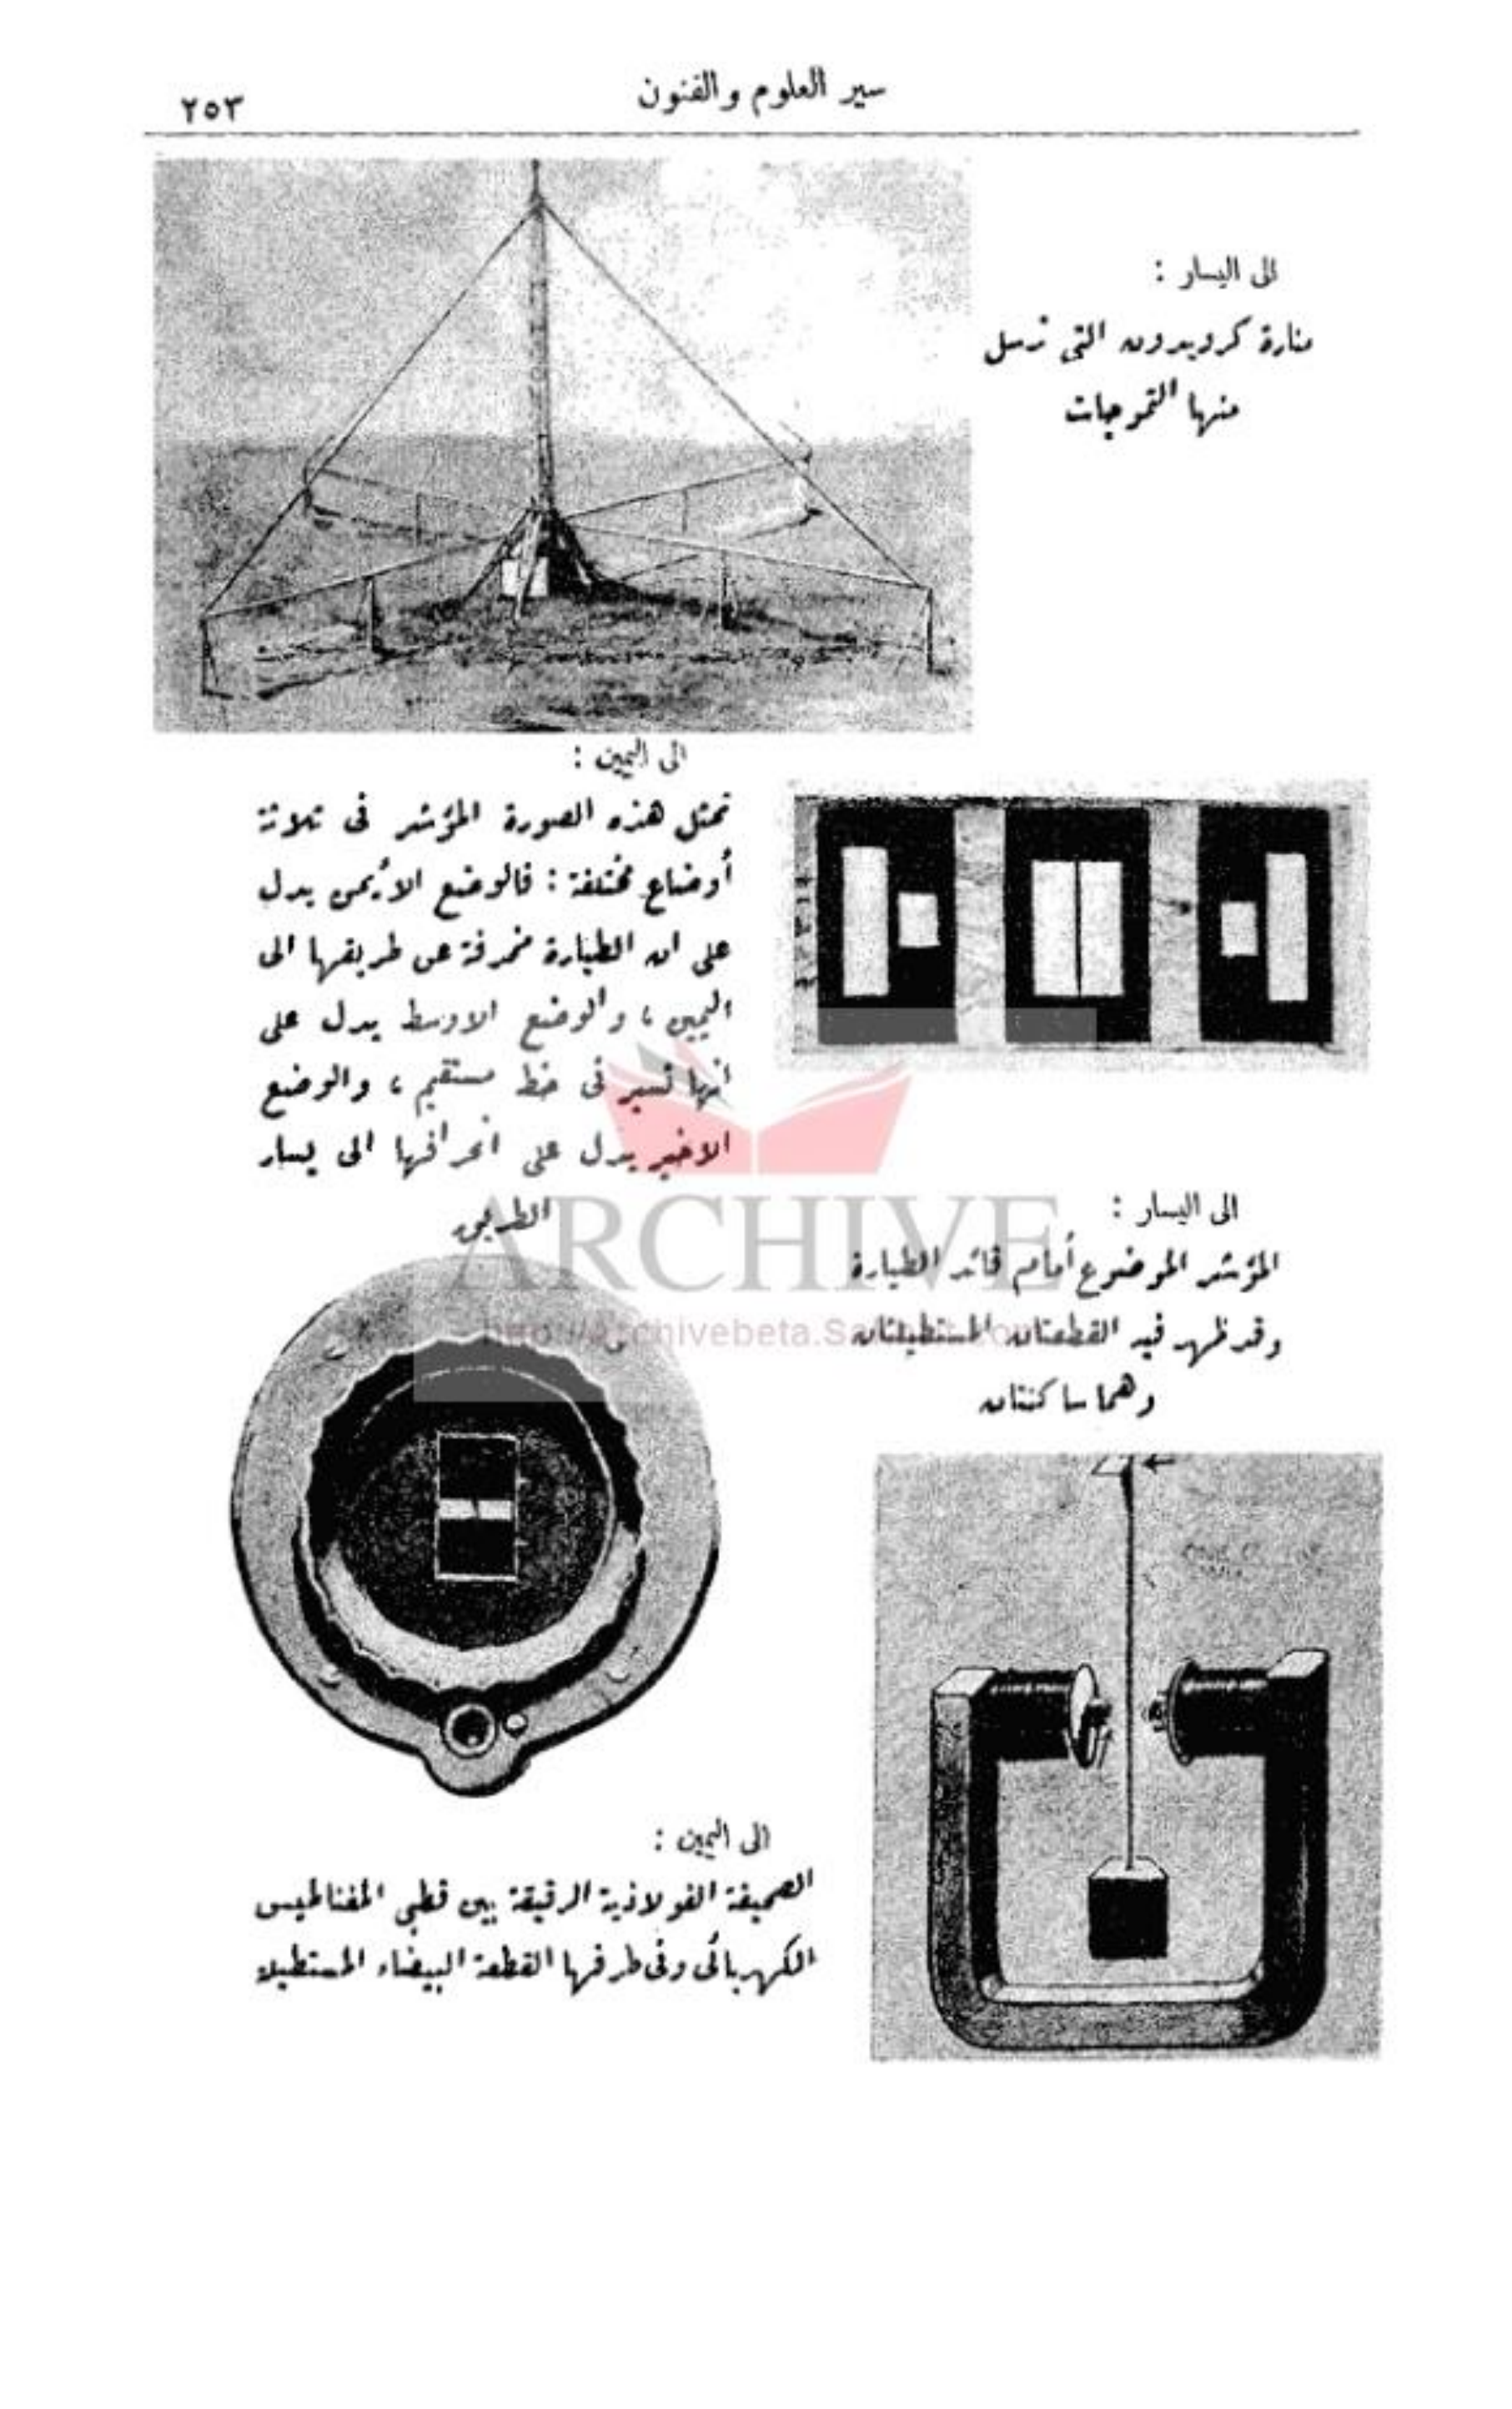 سير العلوم والفنون
٢٥٣
الى اليسار :
منارة كرويدون التى ترسل
منها التموجات
الى اليمين :
تمثل هذه الصورة المؤشر فى ثلاثة
أوضاع مختلفة : فالوضع الأيمن يدل
على ان الطيارة منحرفة عن طريقها الى
اليمين ، والوضع الاوسط يدل على
انها تسير فى خط مستقيم ، والوضع
الاخير يدل على انحرافها الى يسار
الطريق
ARCHIVE
الى اليسار :
المؤشر الموضوع أمام قائد الطيارة
وقد ظهر فيه القطعتان المستطيلتان
وهما ساكنتان
الى اليمين :
الصحيفة الفولاذية الرقيقة بين قطبي المغناطيس
الكهربائى وفى طرفها القطعة البيضاء المستطيلة